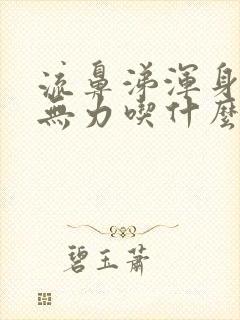 流鼻涕渾身
無力喫什麼
碧玉蕭